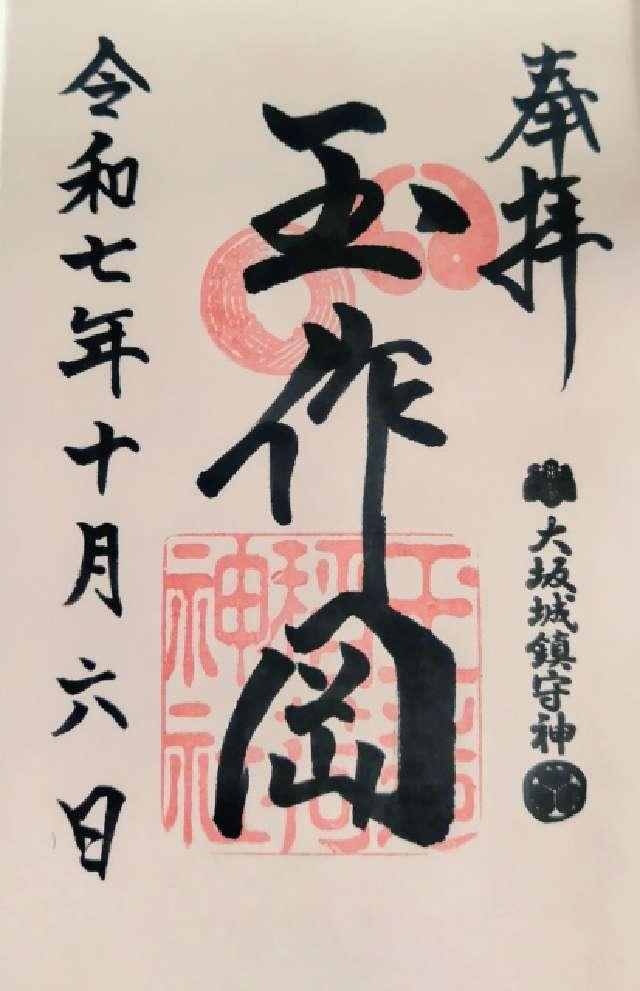 奉拝
大坂城鎮守神
玉作岡
玉造稲荷神社
令和七年十月六日